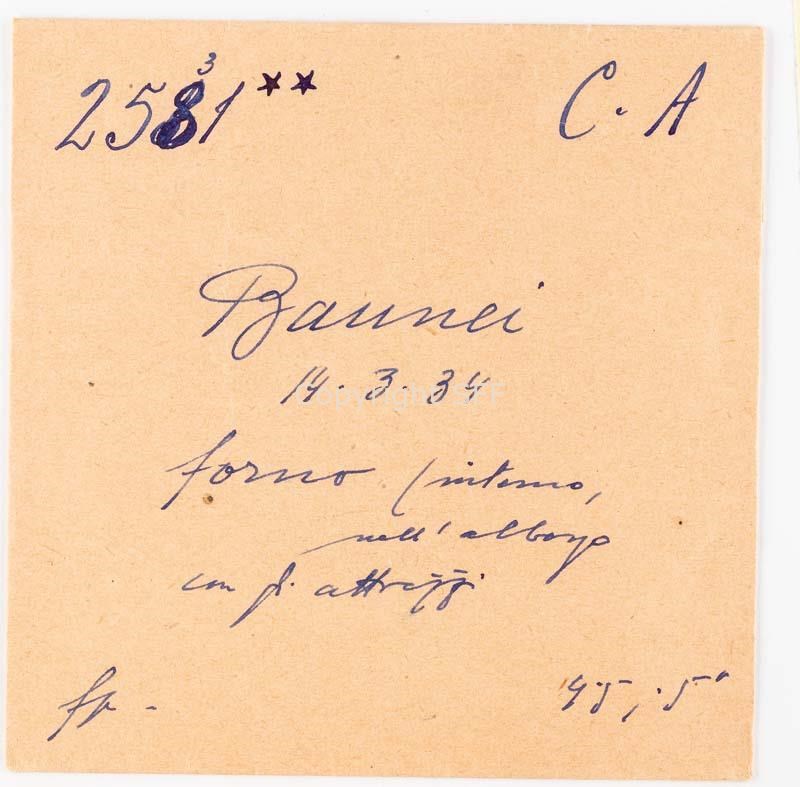 2581** C. A
3
Baunei
14.3.34
Copyright SFF
forno (interno,
nell'albergo
con gli attrezzi
fp -
45, 5"